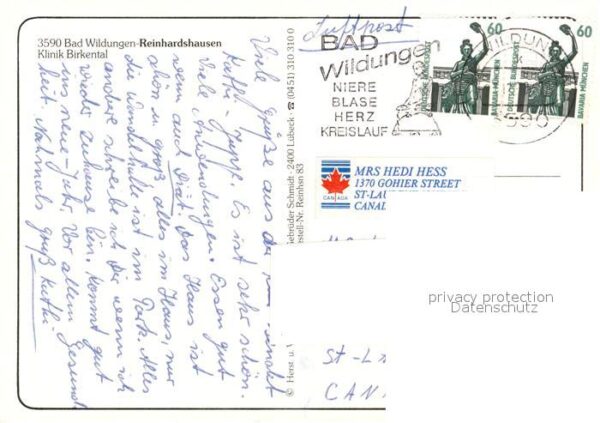 3590 Bad Wildungen-Reinhardshausen
Klinik Birkental
Luftpost
BAD
Wildungen
NIERE
BLASE
HERZ
KREISLAUF
WILDUN
590
60
DEUTSCHE BUNDESPOST
BAVARIA MÜNCHEN
60
DEUTSCHE BUNDESPOST
BAVARIA MÜNCHEN
CANADA
MRS HEDI HESS
1370 GOHIER STREET
ST-LAU
CANAD
St-L
CANA
privacy protection
Datenschutz
Viele Grüße aus der
Kathi - Jupp. Es ist sehr schön.
Viele Anwendungen. Essen gut
wenn auch Diät. Das Haus ist
groß alles im Haus, nur
die Wandelhalle ist im Park. Alles
andere schreibe ich Dir wenn ich
wieder zuhause bin. Kommt gut
ins neue Jahr. Vor allem Gesund
heit. Nochmals Gruß Kathi
© Herst. u. V
Gebrüder Schmidt · 2400 Lübeck · ☎ (0451) 310 310 0
estell-Nr. Reinhsn 83